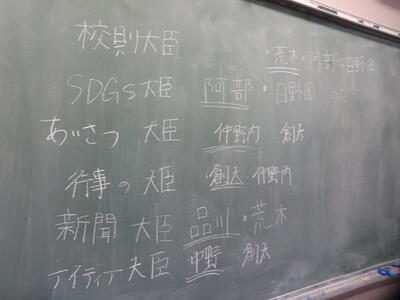 校則大臣 ・荒木・阿部・日野岡
SDGs大臣 阿部・日野岡
あいさつ 大臣 仲野内 創太
行事の大臣 創太 仲野内
新聞 大臣 品川・荒木
アイディア大臣 中野 創太